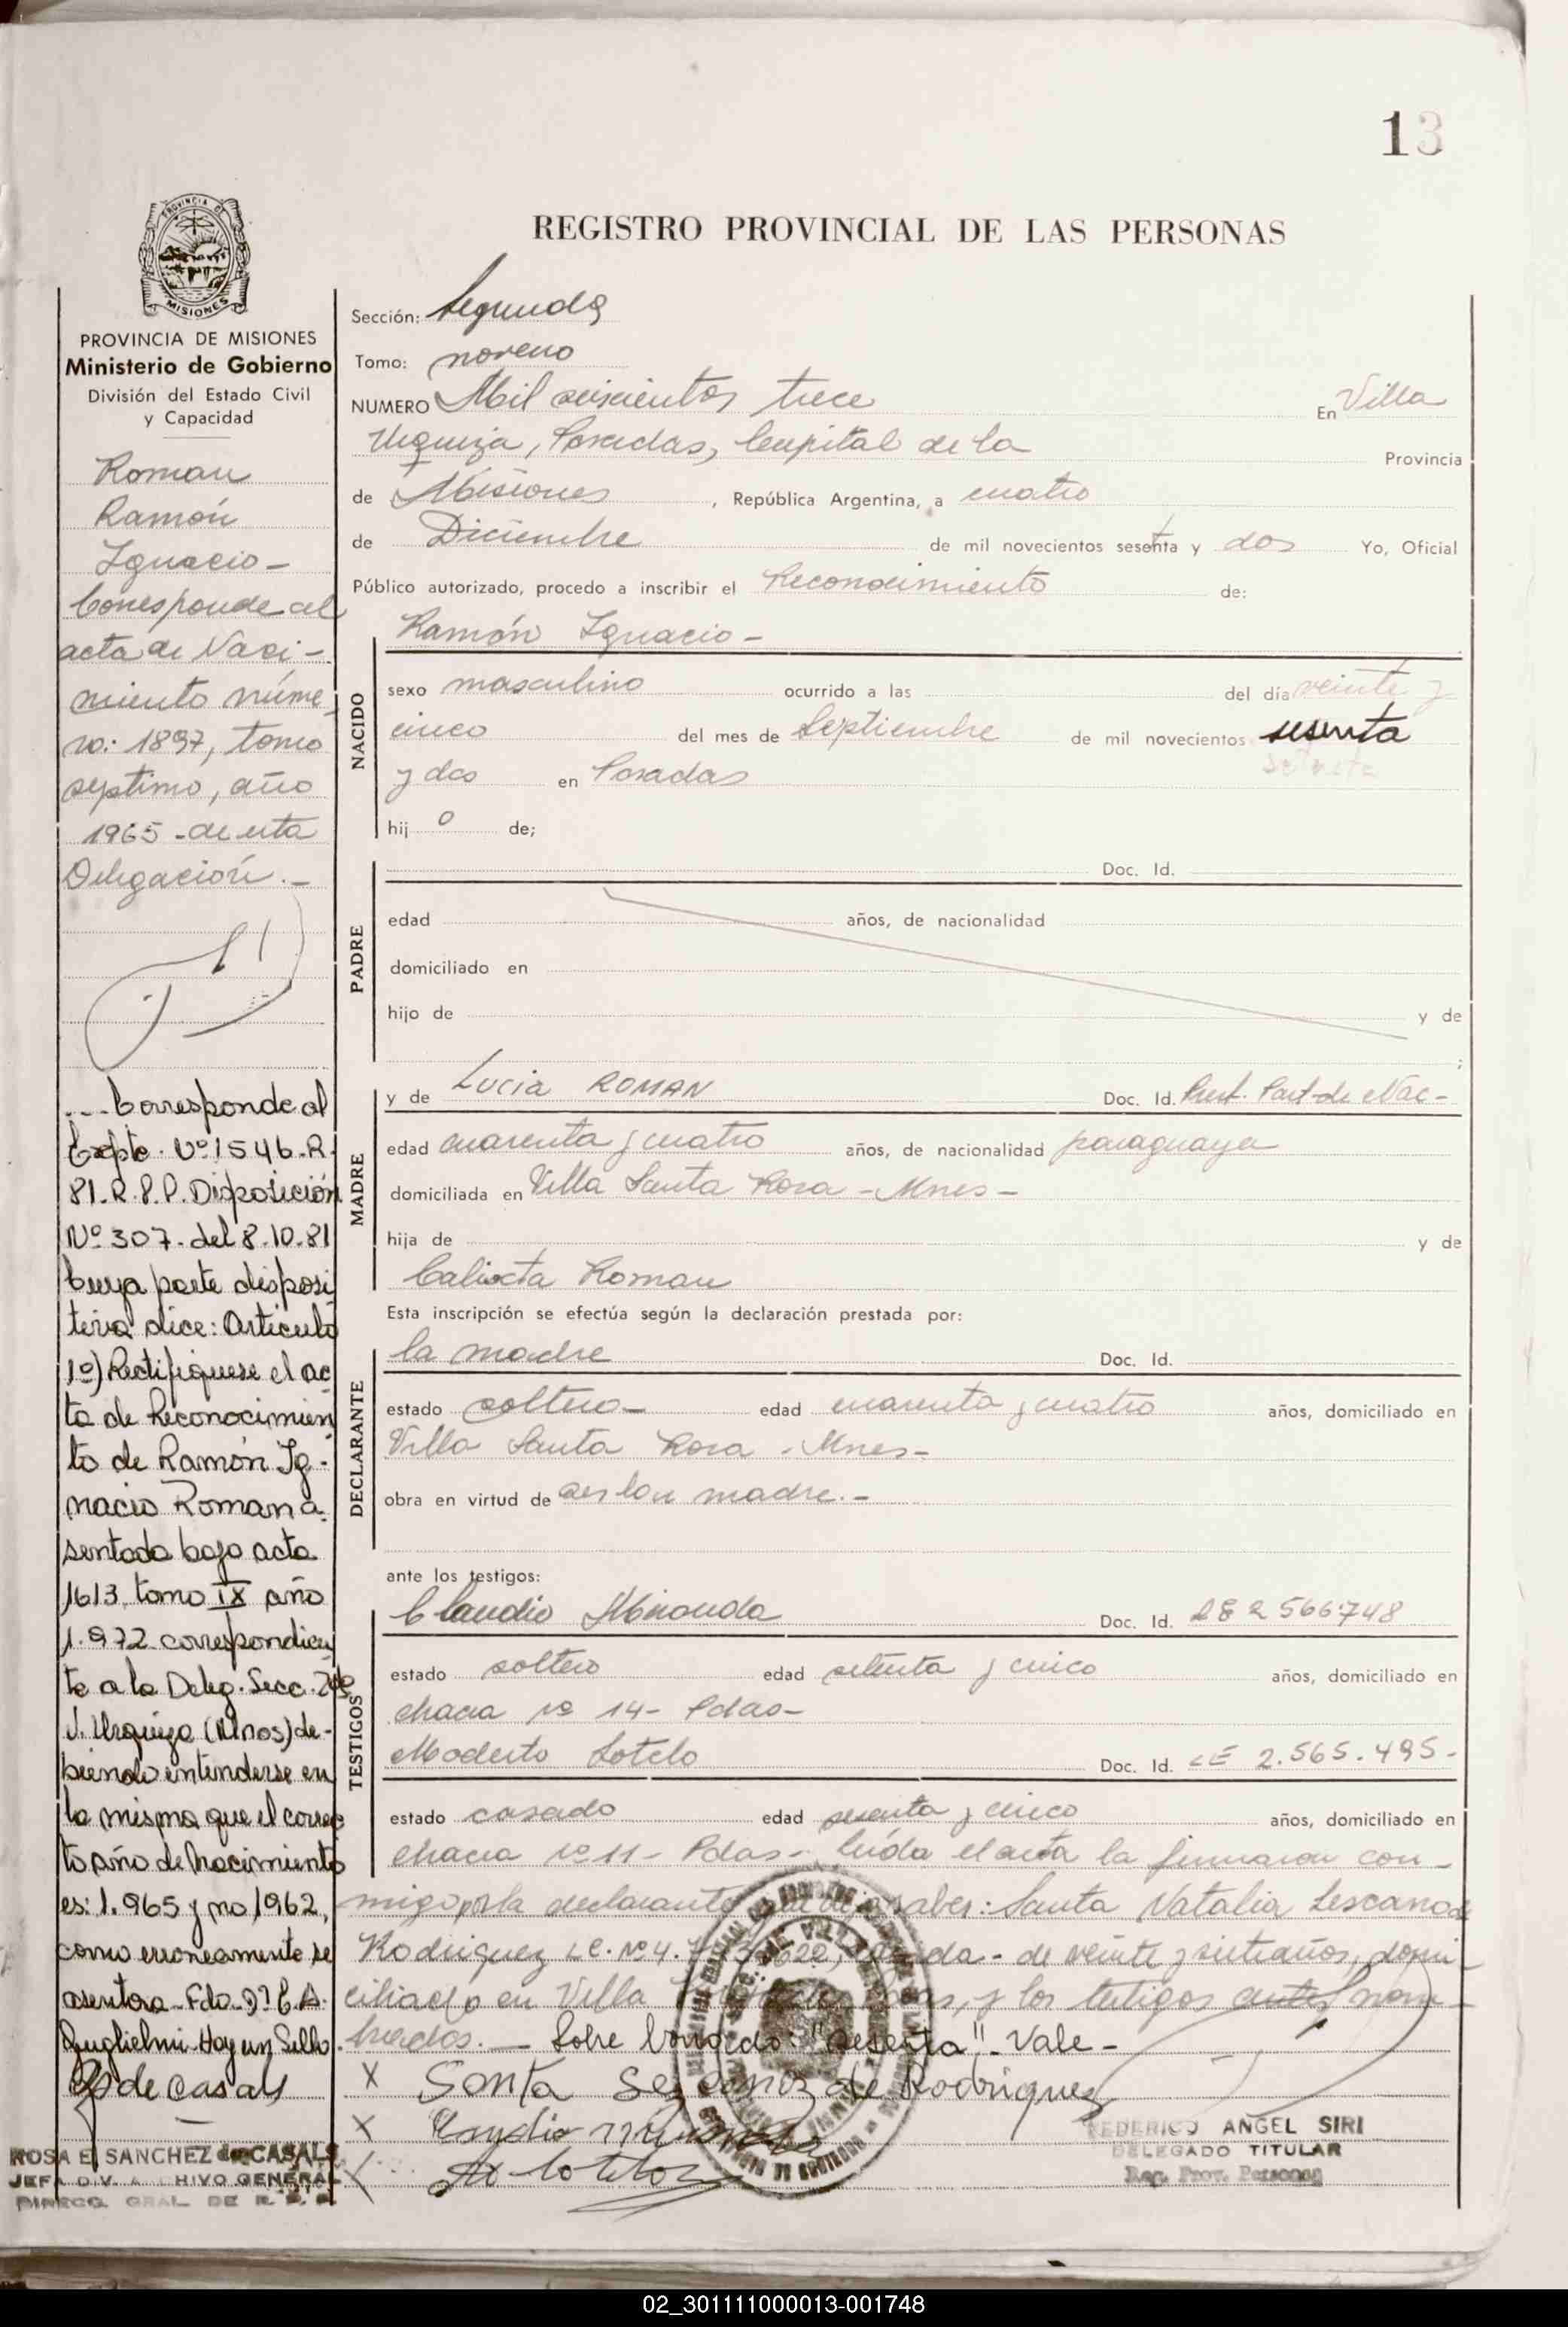 13
REGISTRO PROVINCIAL DE LAS PERSONAS
PROVINCIA DE
MISIONES
PROVINCIA DE MISIONES
Ministerio de Gobierno
División del Estado Civil
y Capacidad
Roman
Ramón
Ignacio -
Corresponde al
acta de Naci-
miento núme-
ro: 1897, tomo
septimo, año
1965 - de esta
Delegación. -
... Corresponde al
Expte. Nº 1546-R-
81-R.P.P. Disposición
Nº 307- del 8.10.81
Cuya parte disposi
tiva dice: Articulo
1º) Rectifiquese el ac
ta de Reconocimien
to de Ramón Ig-
nacio Roman a-
sentada bajo acta
1613, tomo IX año
1.972 correspondien
te a la Deleg. Secc. 2da
V. Urquiza (Mnes) de-
biendo entenderse en
la misma que el correc
to año de Nacimiento
es: 1.965 y no 1962,
como erroneamente se
asentora - Fdo.
Guglielmi - Hay un Sello.
de Casals
ROSA E. SANCHEZ de CASALS
JEFA DIV. ARCHIVO GENERAL
DIRECC. GRAL DE R.
Sección: Segunda
Tomo: noveno
NUMERO Mil seiscientos trece En Villa
Urquiza, Posadas, Capital de la Provincia
de Misiones , República Argentina, a cuatro
de Diciembre de mil novecientos sesenta y dos Yo, Oficial
Público autorizado, procedo a inscribir el Reconocimiento de:
Ramón Ignacio -
NACIDO
sexo masculino ocurrido a las del día veinte y
cinco del mes de Septiembre de mil novecientos sesenta
y dos en Posadas
hij o de;
PADRE
Doc. Id.
edad años, de nacionalidad
domiciliado en
hijo de y de
;
MADRE
y de Lucia ROMAN Doc. Id. Pres. Part. de Nac -
edad cuarenta y cuatro años, de nacionalidad paraguaya
domiciliada en Villa Santa Rosa - Mnes -
hija de y de
Calixta Roman
Esta inscripción se efectúa según la declaración prestada por:
DECLARANTE
la madre Doc. Id.
estado soltera - edad cuarenta y cuatro años, domiciliado en
Villa Santa Rosa - Mnes -
obra en virtud de ser la madre. -
ante los testigos:
TESTIGOS
Claudio Miranda Doc. Id. 2566748
estado soltero edad setenta y cinco años, domiciliado en
chacra nº 14 - Pdas -
Modesto Sotelo Doc. Id. LE 2.565.495 -
estado casado edad sesenta y cinco años, domiciliado en
chacra nº 11 - Pdas - Leída el acta la firmaron con-
migo, por la declarante que saber: Santa Natalia Lescano de
Rodriguez LC. Nº 4. casada - de veinte y siete años, domi
ciliada en Villa y los testigos antes nom-
brados. — Sobre borrado: "sesenta" - Vale -
X Santa Lescano de Rodriguez
X
X Sotelo
FEDERICO ANGEL SIRI
DELEGADO TITULAR
Reg. Prov. Personas
02_301111000013-001748